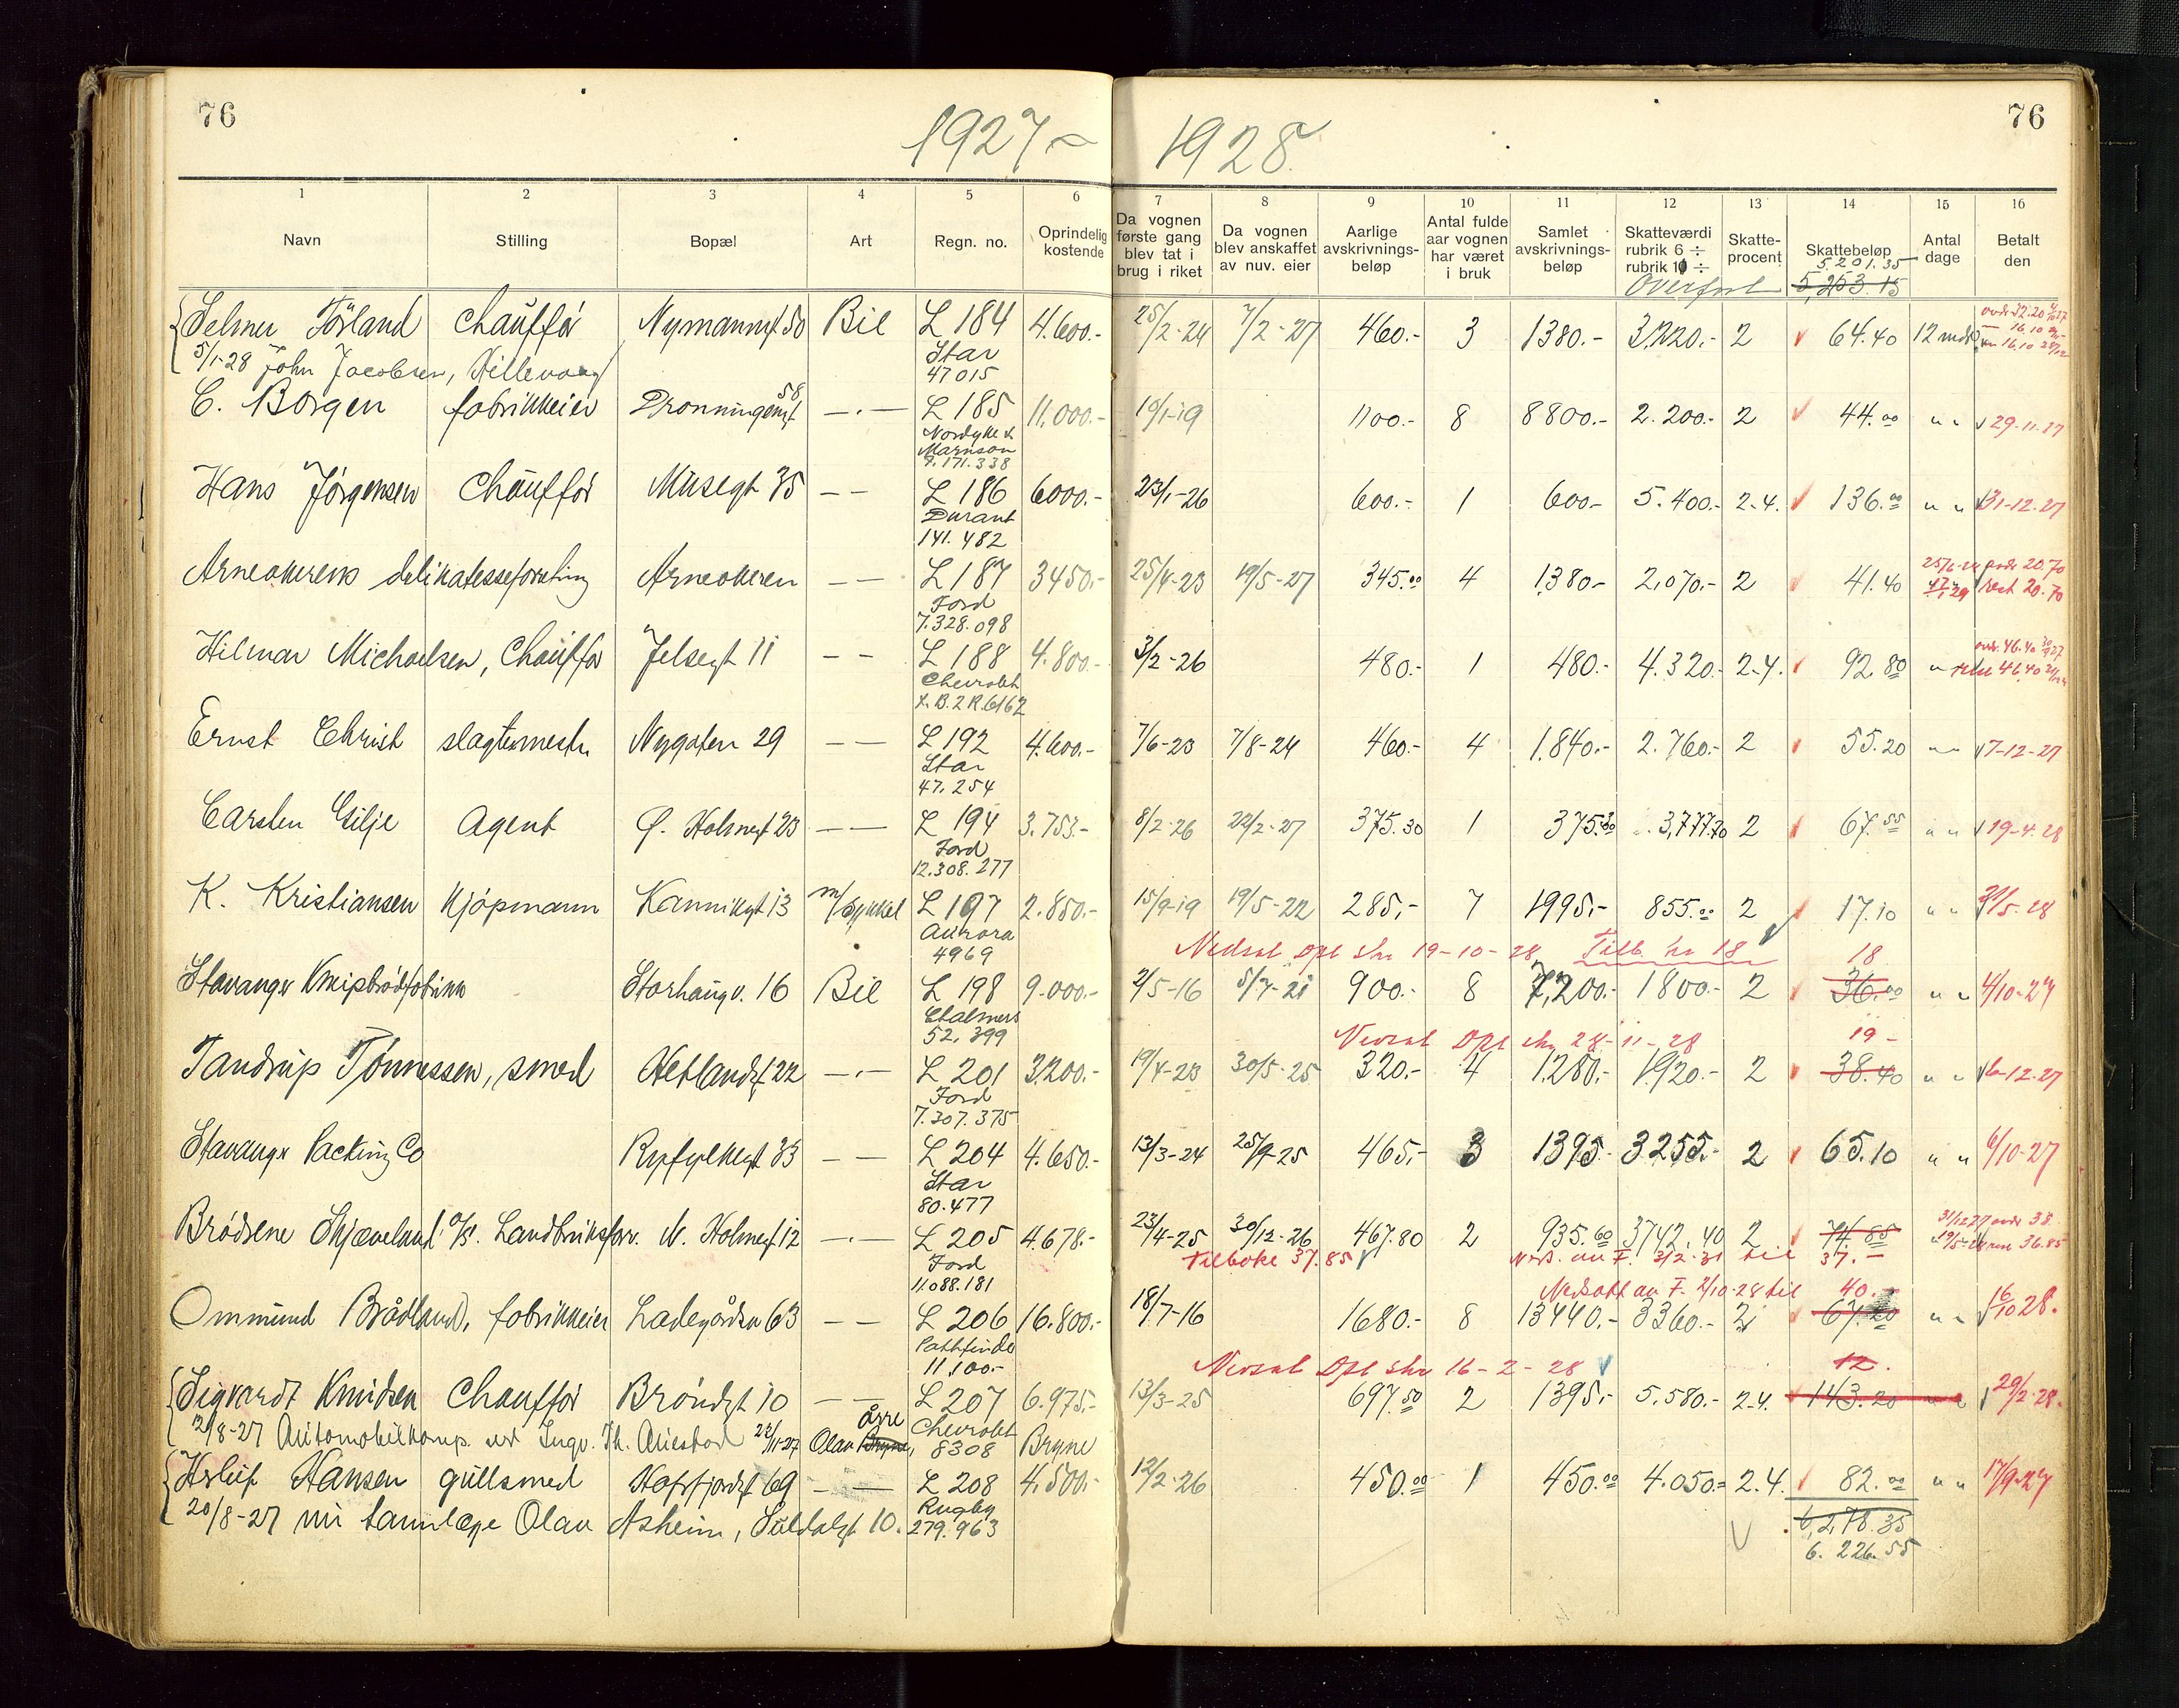 76
76
1927 – 1928.
1 2 3 4 5 6 7 8 9 10 11 12 13 14 15 16
Navn Stilling Bopæl Art Regn. no. Oprindelig kostende Da vognen første gang blev tat i brug i riket Da vognen blev anskaffet av nuv. eier Aarlige avskrivnings-beløp Antal fulde aar vognen har været i bruk Samlet avskrivnings-beløp Skatteværdi rubrik 6 ÷ rubrik 11 ÷ Skatte-procent Skattebeløp Antal dage Betalt den
5.201.35
Overført 5,253.15
Selmer Törland Chauffór Nymannsgt 50 Bil L 184 4.600.- 25/2-24 7/2-27 460.- 3 1380.- 3,220.- 2 64.40 12 mdr
Star
5/1-28 John Jacobsen, Hillevaag 47015
C. Borgen fabrikkeier Dronningensgt 58 —.— L 185 11.000.- 10/1-19 1100.- 8 8800.- 2.200.- 2 44.00 " " 29-11-27
Nordyke &
Marmon
9.171.338
Hans Jörgensen Chauffór Musegt 35 — — L 186 6000.- 23/1-26 600.- 1 600.- 5.400.- 2.4. 136.00 " " 31-12-27
Durant
141.482
Arneakrens delikatesseforretning Arneakren — — L 187 3450.- 25/4-23 19/5-27 345.00 4 1380.- 2,070.- 2 41.40 rest 20.70
Ford
7.328.098
Hilmar Michaelsen, Chauffór Jelsegt 11 — — L 188 4.800.- 3/2-26 480.- 1 480.- 4.320.- 2.4. 92.80 " rest 46.40
Chevrolet
Z.B.2R.6162
Ernst Christ slagtermester Nygaten 29 — — L 192 4.600.- 7/6-23 7/8-24 460.- 4 1.840.- 2.760.- 2 55.20 " " 7-12-27
Star
47.254
Carsten Gilje Agent Ø. Holmegt 23 — — L 194 3.753.- 8/2-26 22/2-27 375.30 1 375.30 3,377.70 2 67.55 " " 19-4.28
Ford
12.308.277
K. Kristiansen Kjópmann Kannikgt 13 m/Sykkel L 197 2.850.- 15/9-19 19/5-22 285.- 7 1995.- 855.00 2 17.10 " " 31/5-28
Aurora
4969
Nedsat Opl skr 19-10-28 Tilb. kr 18 18
Stavanger Kneipbrödfabrikk Storhaugv. 16 Bil L 198 9.000.- 2/5-16 5/7-21 900.- 8 7,200.- 1800.- 2 36.00 " " 4/10-27
Chalmers
52.399
Nedsat Opl skr 28-11-28 19 -
Tandrup Tönnessen, smed Hetlandsgt 22 —.— L 201 3,200.- 19/4-23 30/5-25 320.- 4 1.280.- 1.920.- 2 38.40 " " 6-12-27
Ford
7.307.375
Stavanger Packing Co Ryfylkegt 33 — — L 204 4.650.- 13/3-24 25/9-25 465.- 3 1395.- 3255.- 2 65.10 " " 6/10-27
Star
80.477
Brödrene Skjæveland A/S. Landbruksforr. N. Holmegt 12 —.— L 205 4.678.- 23/4-25 30/12-26 467.80 2 935.60 3742.40 2 74.85
Tilbake 37.85 Neds. av F. 3/2-31 til 37.-
Ford
11.088.181
Nedsatt av F. 2/10-28 til 40.-
Ommund Brådland, fabrikkeier Ladegårdsv 63 — — L 206 16.800.- 18/7-16 1680.- 8 13440.- 3360.- 2 67.20 " " 16/10 28.
Pathfinder
11.100.-
Nedsat Opl skr 16-2-28 12.
Sigvardt Knudsen Chauffór Bröndgt 10 — — L 207 6.975.- 13/3-25 697.50 2 1395.- 5.580.- 2.4. 143.20 " " 29/2-28.
Chevrolet
8308
12/8-27 Automobilkomp. ved Ingv. Th. Auestad 22/11-27 Olau Bryne, Årre Bryne
Herluf Hansen gullsmed Hafrsfjordgt 69 — — L 208 4.500.- 12/2-26 450.00 1 450.00 4.050.- 2.4. 82.00 " " 17/9-27
Rugby
20/8-27 nu tannlæge Olav Asheim, Suldalsgt 10. 279.963
6,278.35
6.226.55